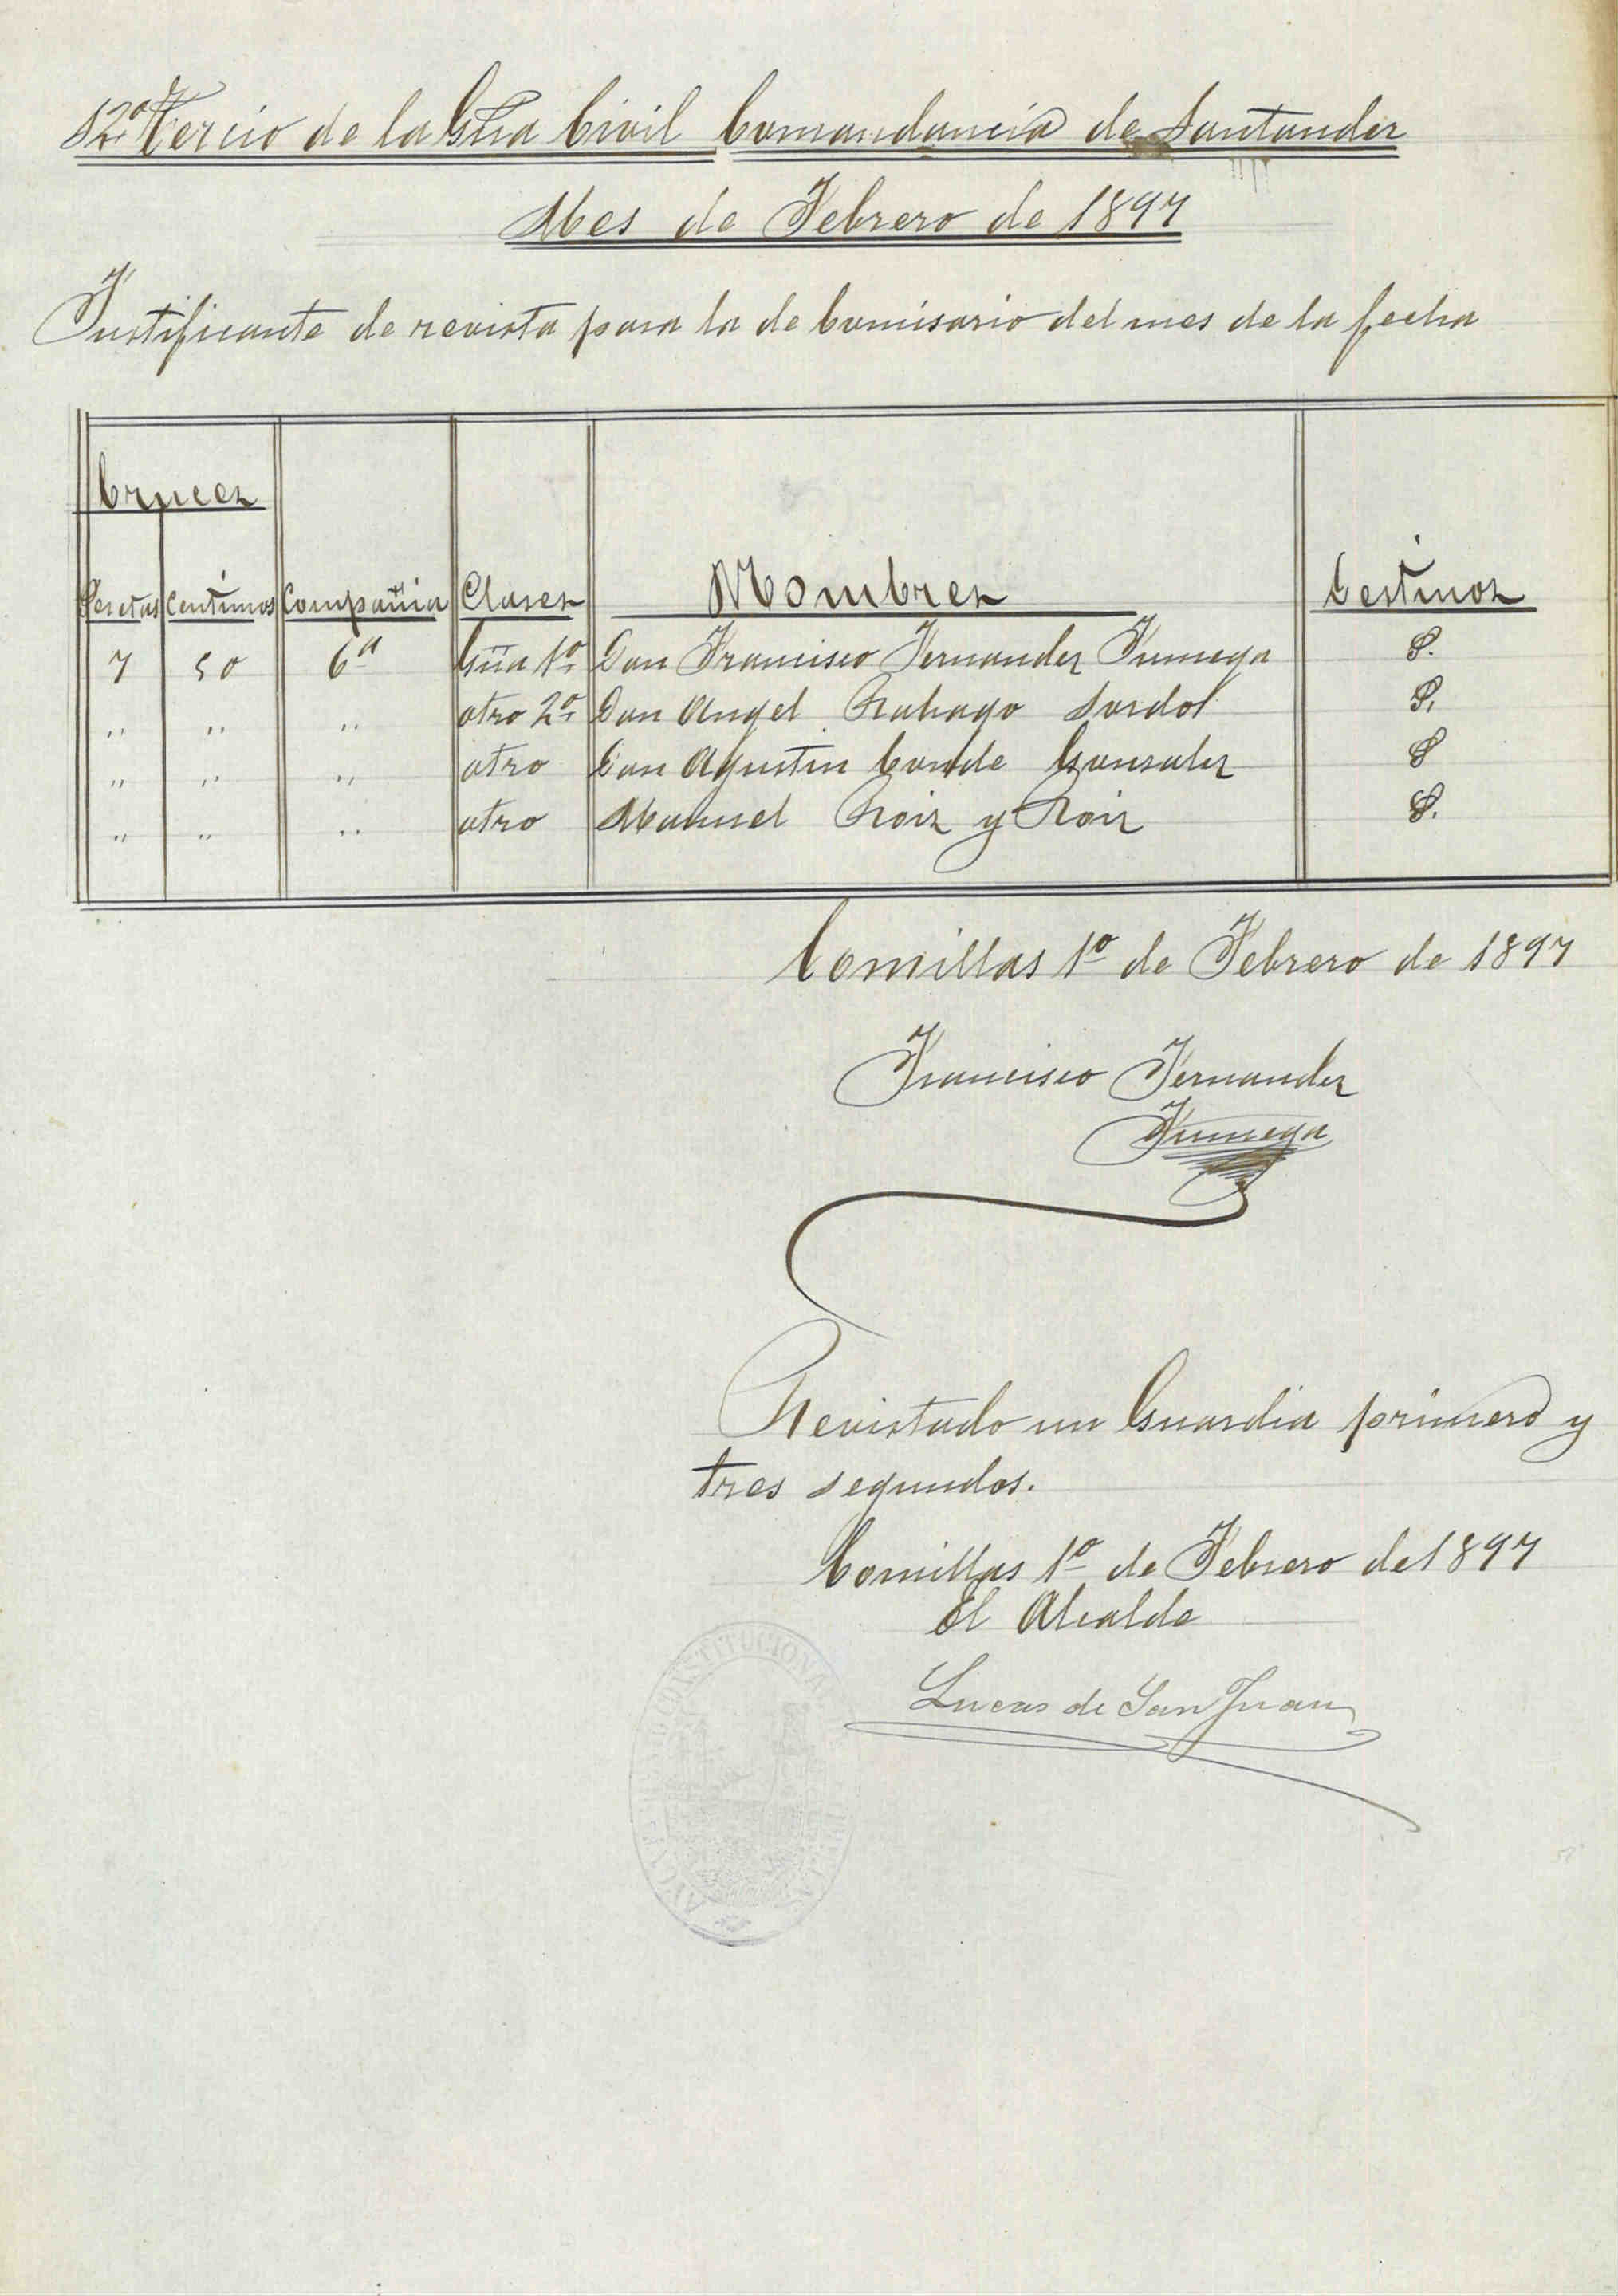 12º Tercio de la Gua Civil Comandancia de Santander
Mes de Febrero de 1897
Justificante de revista para la de Comisario del mes de la fecha
Cruces
Pesetas Centimos Compañia Clases Nombres Destinos
7 50 6ª Gũa 1º Don Francisco Fernandez Fumega P.
" " " otro 2º Don Angel Rabago Sordol P.
" " " otro Don Agustin Conde Gonsalez P
" " " otro Manuel Roiz y Roiz P.
Comillas 1º de Febrero de 1897
Francisco Fernandez
Fumega
Revistado un Guardia primero y
tres segundos.
Comillas 1º de Febrero de 1897
El Alcalde
Lucas de San Juan
CONSTITUCIONAL